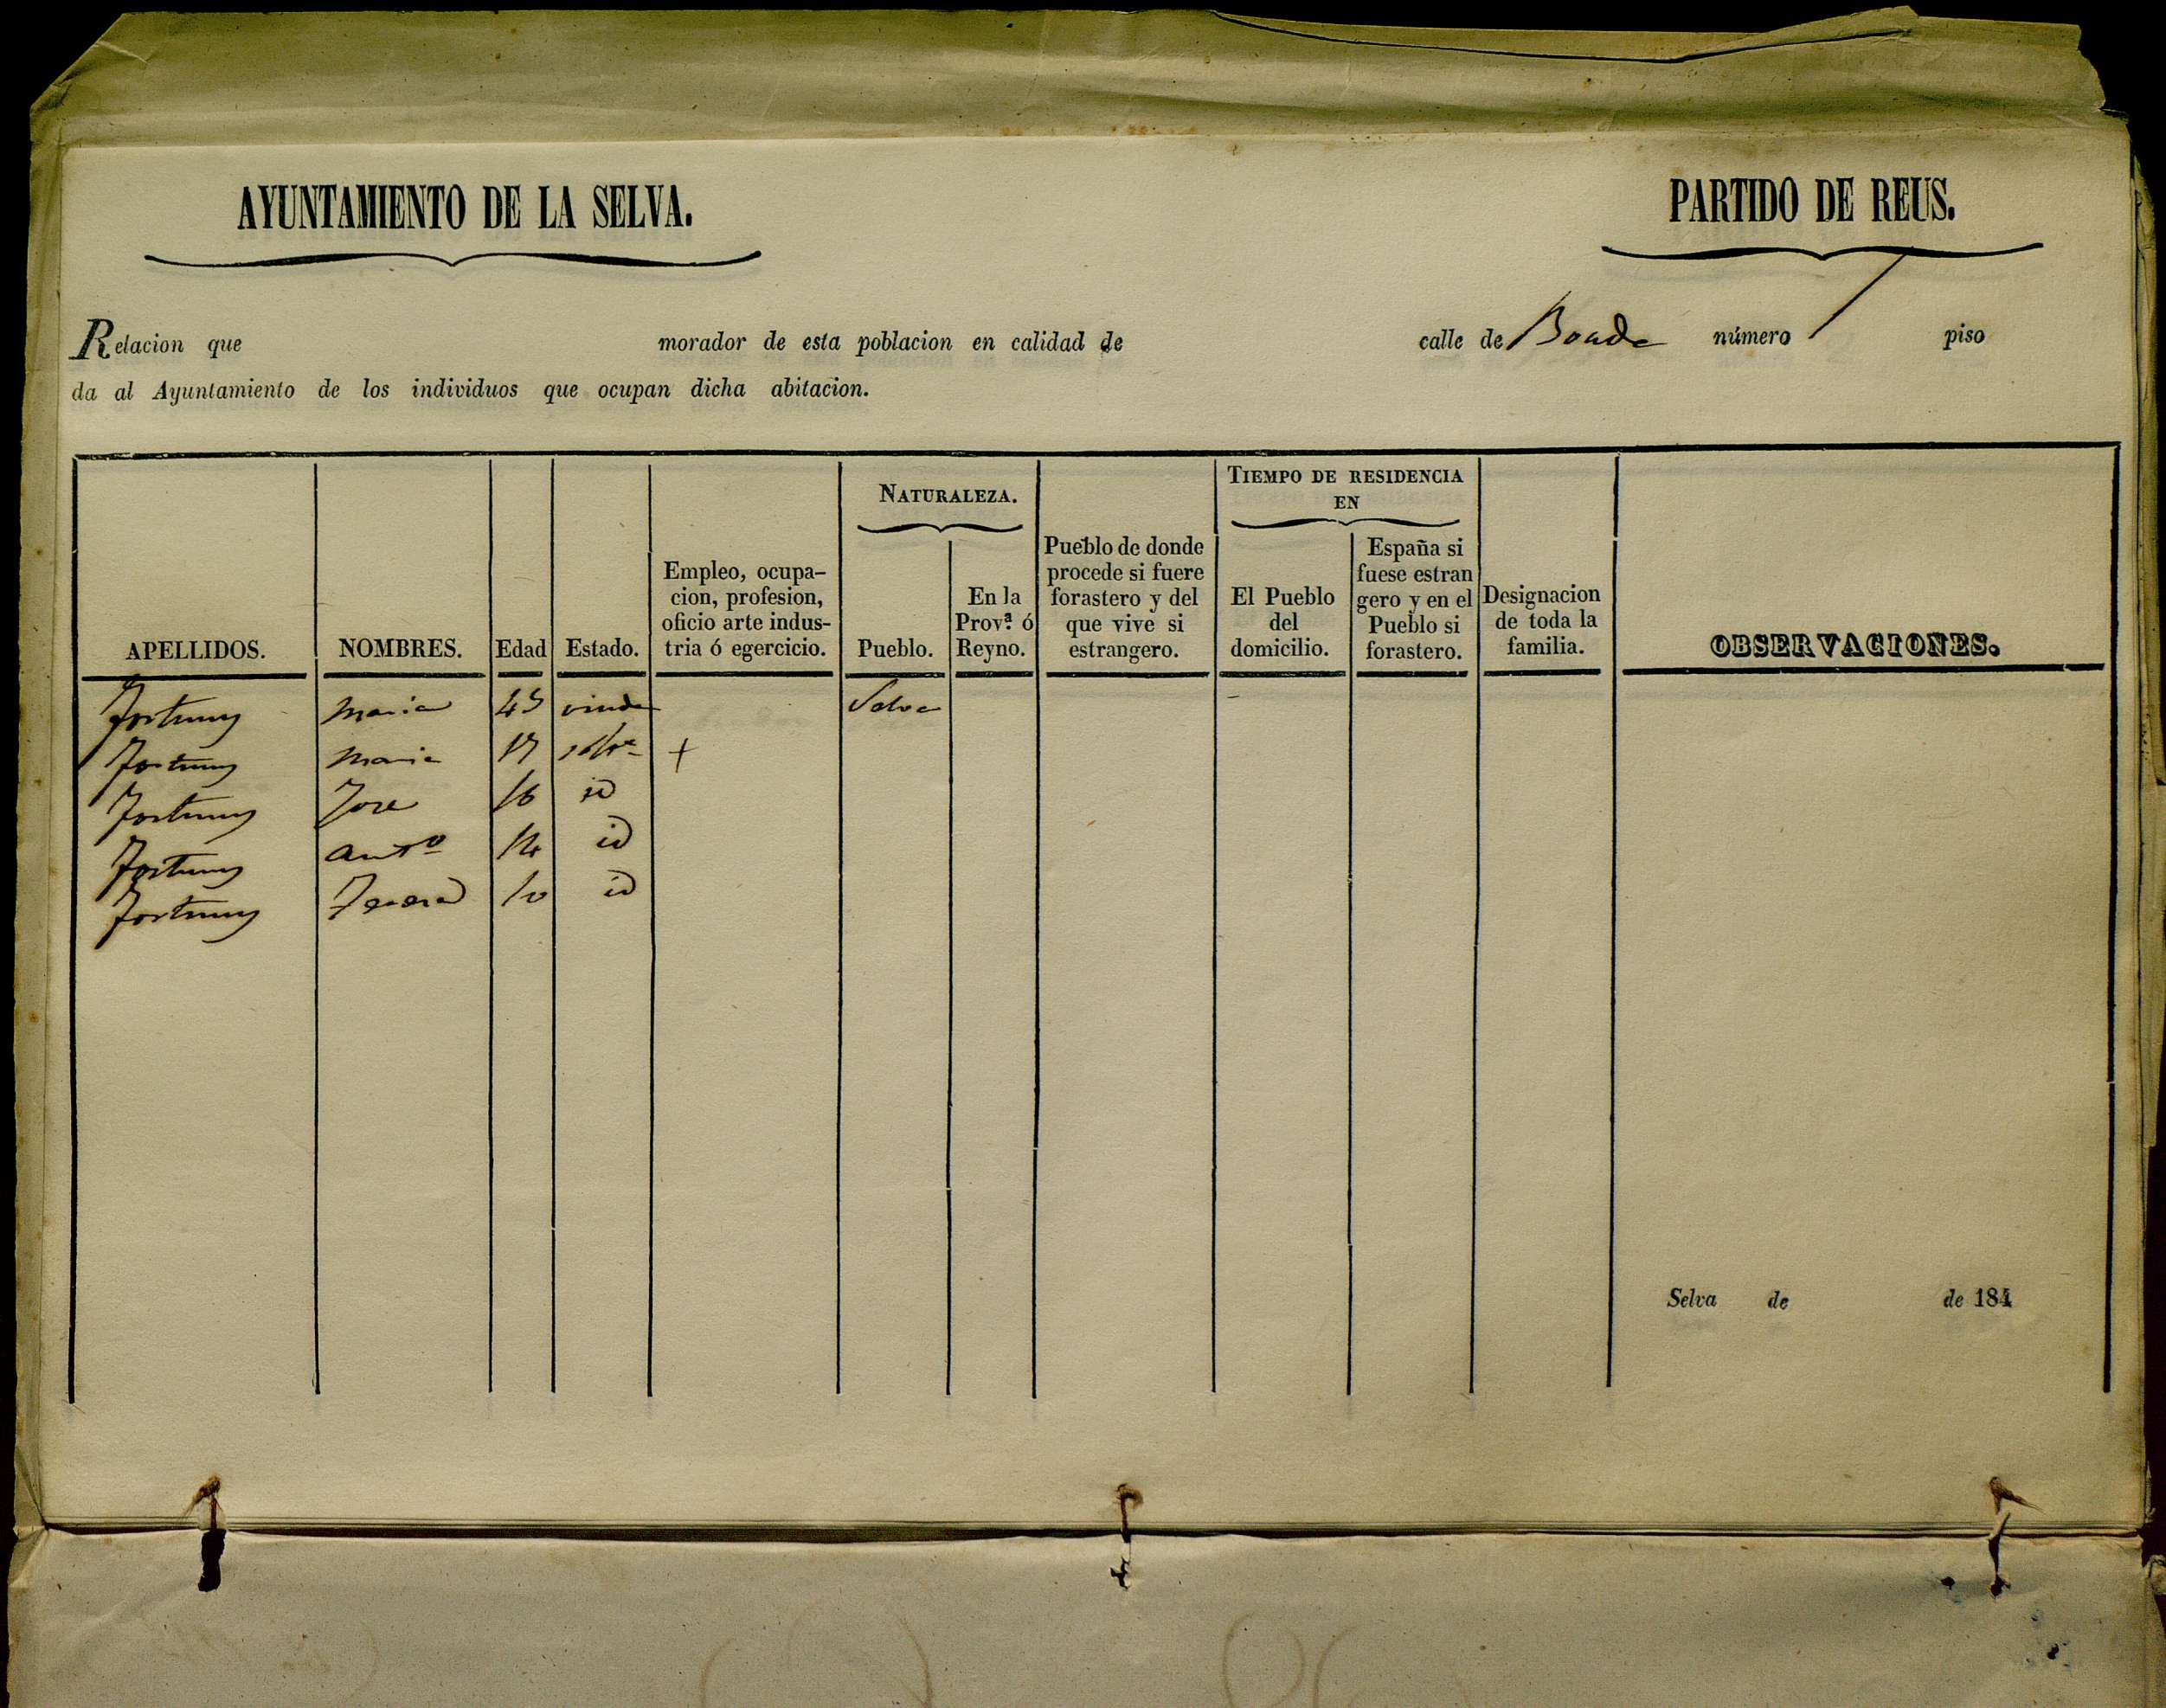 AYUNTAMIENTO DE LA SELVA.
PARTIDO DE REUS.
Relacion que morador de esta poblacion en calidad de calle de número 1 piso
da al Ayuntamiento de los individuos que ocupan dicha abitacion.
APELLIDOS.
NOMBRES.
Edad
Estado.
Empleo, ocupa-
cion, profesion,
oficio arte indus-
tria ó egercicio.
NATURALEZA.
Pueblo.
En la
Prov.ª ó
Reyno.
Pueblo de donde
procede si fuere
forastero y del
que vive si
estrangero.
TIEMPO DE RESIDENCIA
EN
El Pueblo
del
domicilio.
España si
fuese estran
gero y en el
Pueblo si
forastero.
Designacion
de toda la
familia.
OBSERVACIONES.
Fortuny Maria 45 viuda Selva
Fortuny Maria 17 +
Fortuny Jose 16 id
Fortuny Antº 14 id
Fortuny 10 id
Selva de de 184